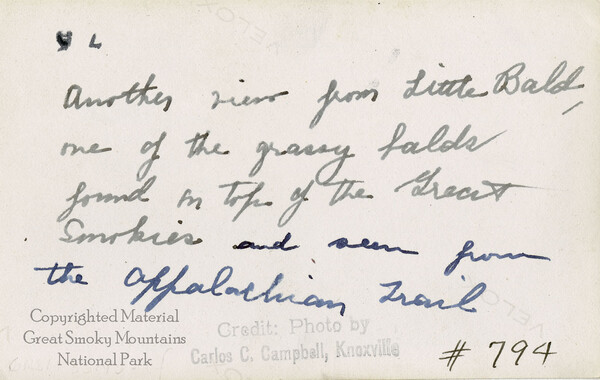 Another view from Little Bald,
one of the grassy balds
found on top of the Great
Smokies and seen from
the Appalachian Trail
Copyrighted Material
Great Smoky Mountains
National Park
Credit: Photo by
Carlos C. Campbell, Knoxville
# 794